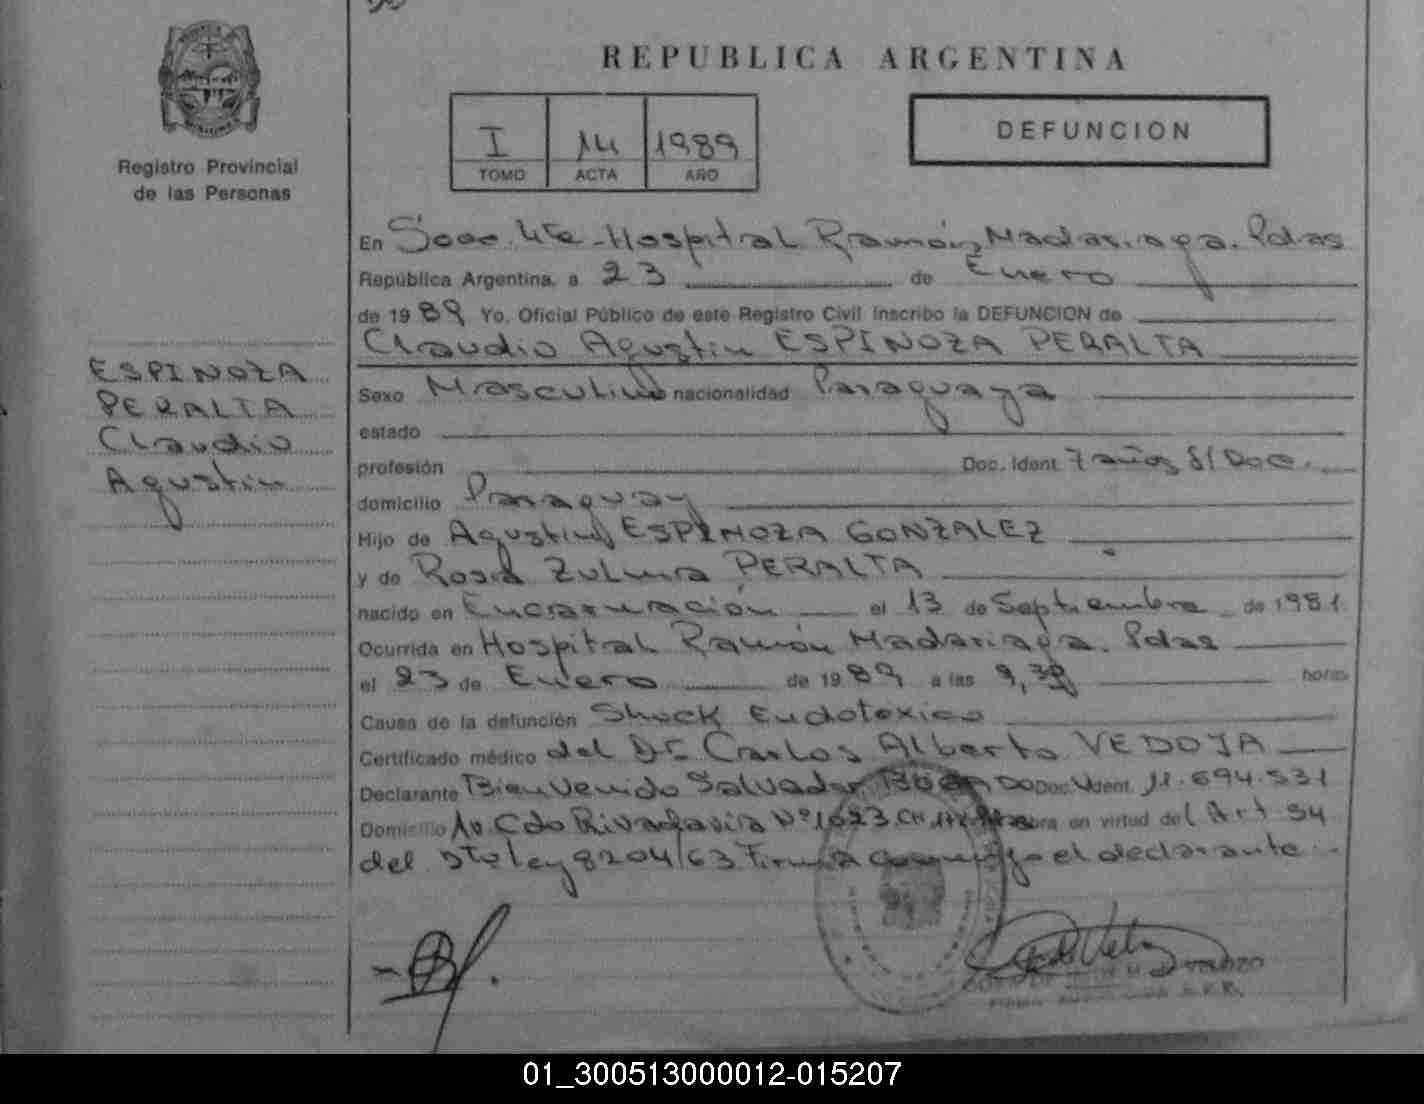 REPUBLICA ARGENTINA
Registro Provincial
de las Personas
I 14 1989
TOMO ACTA AÑO
DEFUNCION
ESPINOZA
PERALTA
Claudio
Agustin
En Secc. 4ta - Hospital Ramón Madariaga. Pdas
República Argentina, a 23 de Enero
de 1989 Yo, Oficial Público de este Registro Civil inscribo la DEFUNCION de
Claudio Agustin ESPINOZA PERALTA
Sexo Masculino nacionalidad Paraguaya
estado
profesión Doc. Ident. 7 años S/Doc.
domicilio Paraguay
Hijo de Agustin ESPINOZA GONZALEZ
y de Rosa Zulma PERALTA
nacido en Encarnación el 13 de Septiembre de 1981
Ocurrida en Hospital Ramón Madariaga. Pdas
el 23 de Enero de 1989 a las 9,30 horas
Causa de la defunción Shock Endotoxico
Certificado médico del Dr. Carlos Alberto VEDOJA
Declarante Bienvenido Salvador Doc. Ident. 11.694.531
Domicilio Av. Cdo Rivadavia Nº 1623 en virtud del Art 54
del ley 8204/63 Firma el declarante
01_300513000012-015207